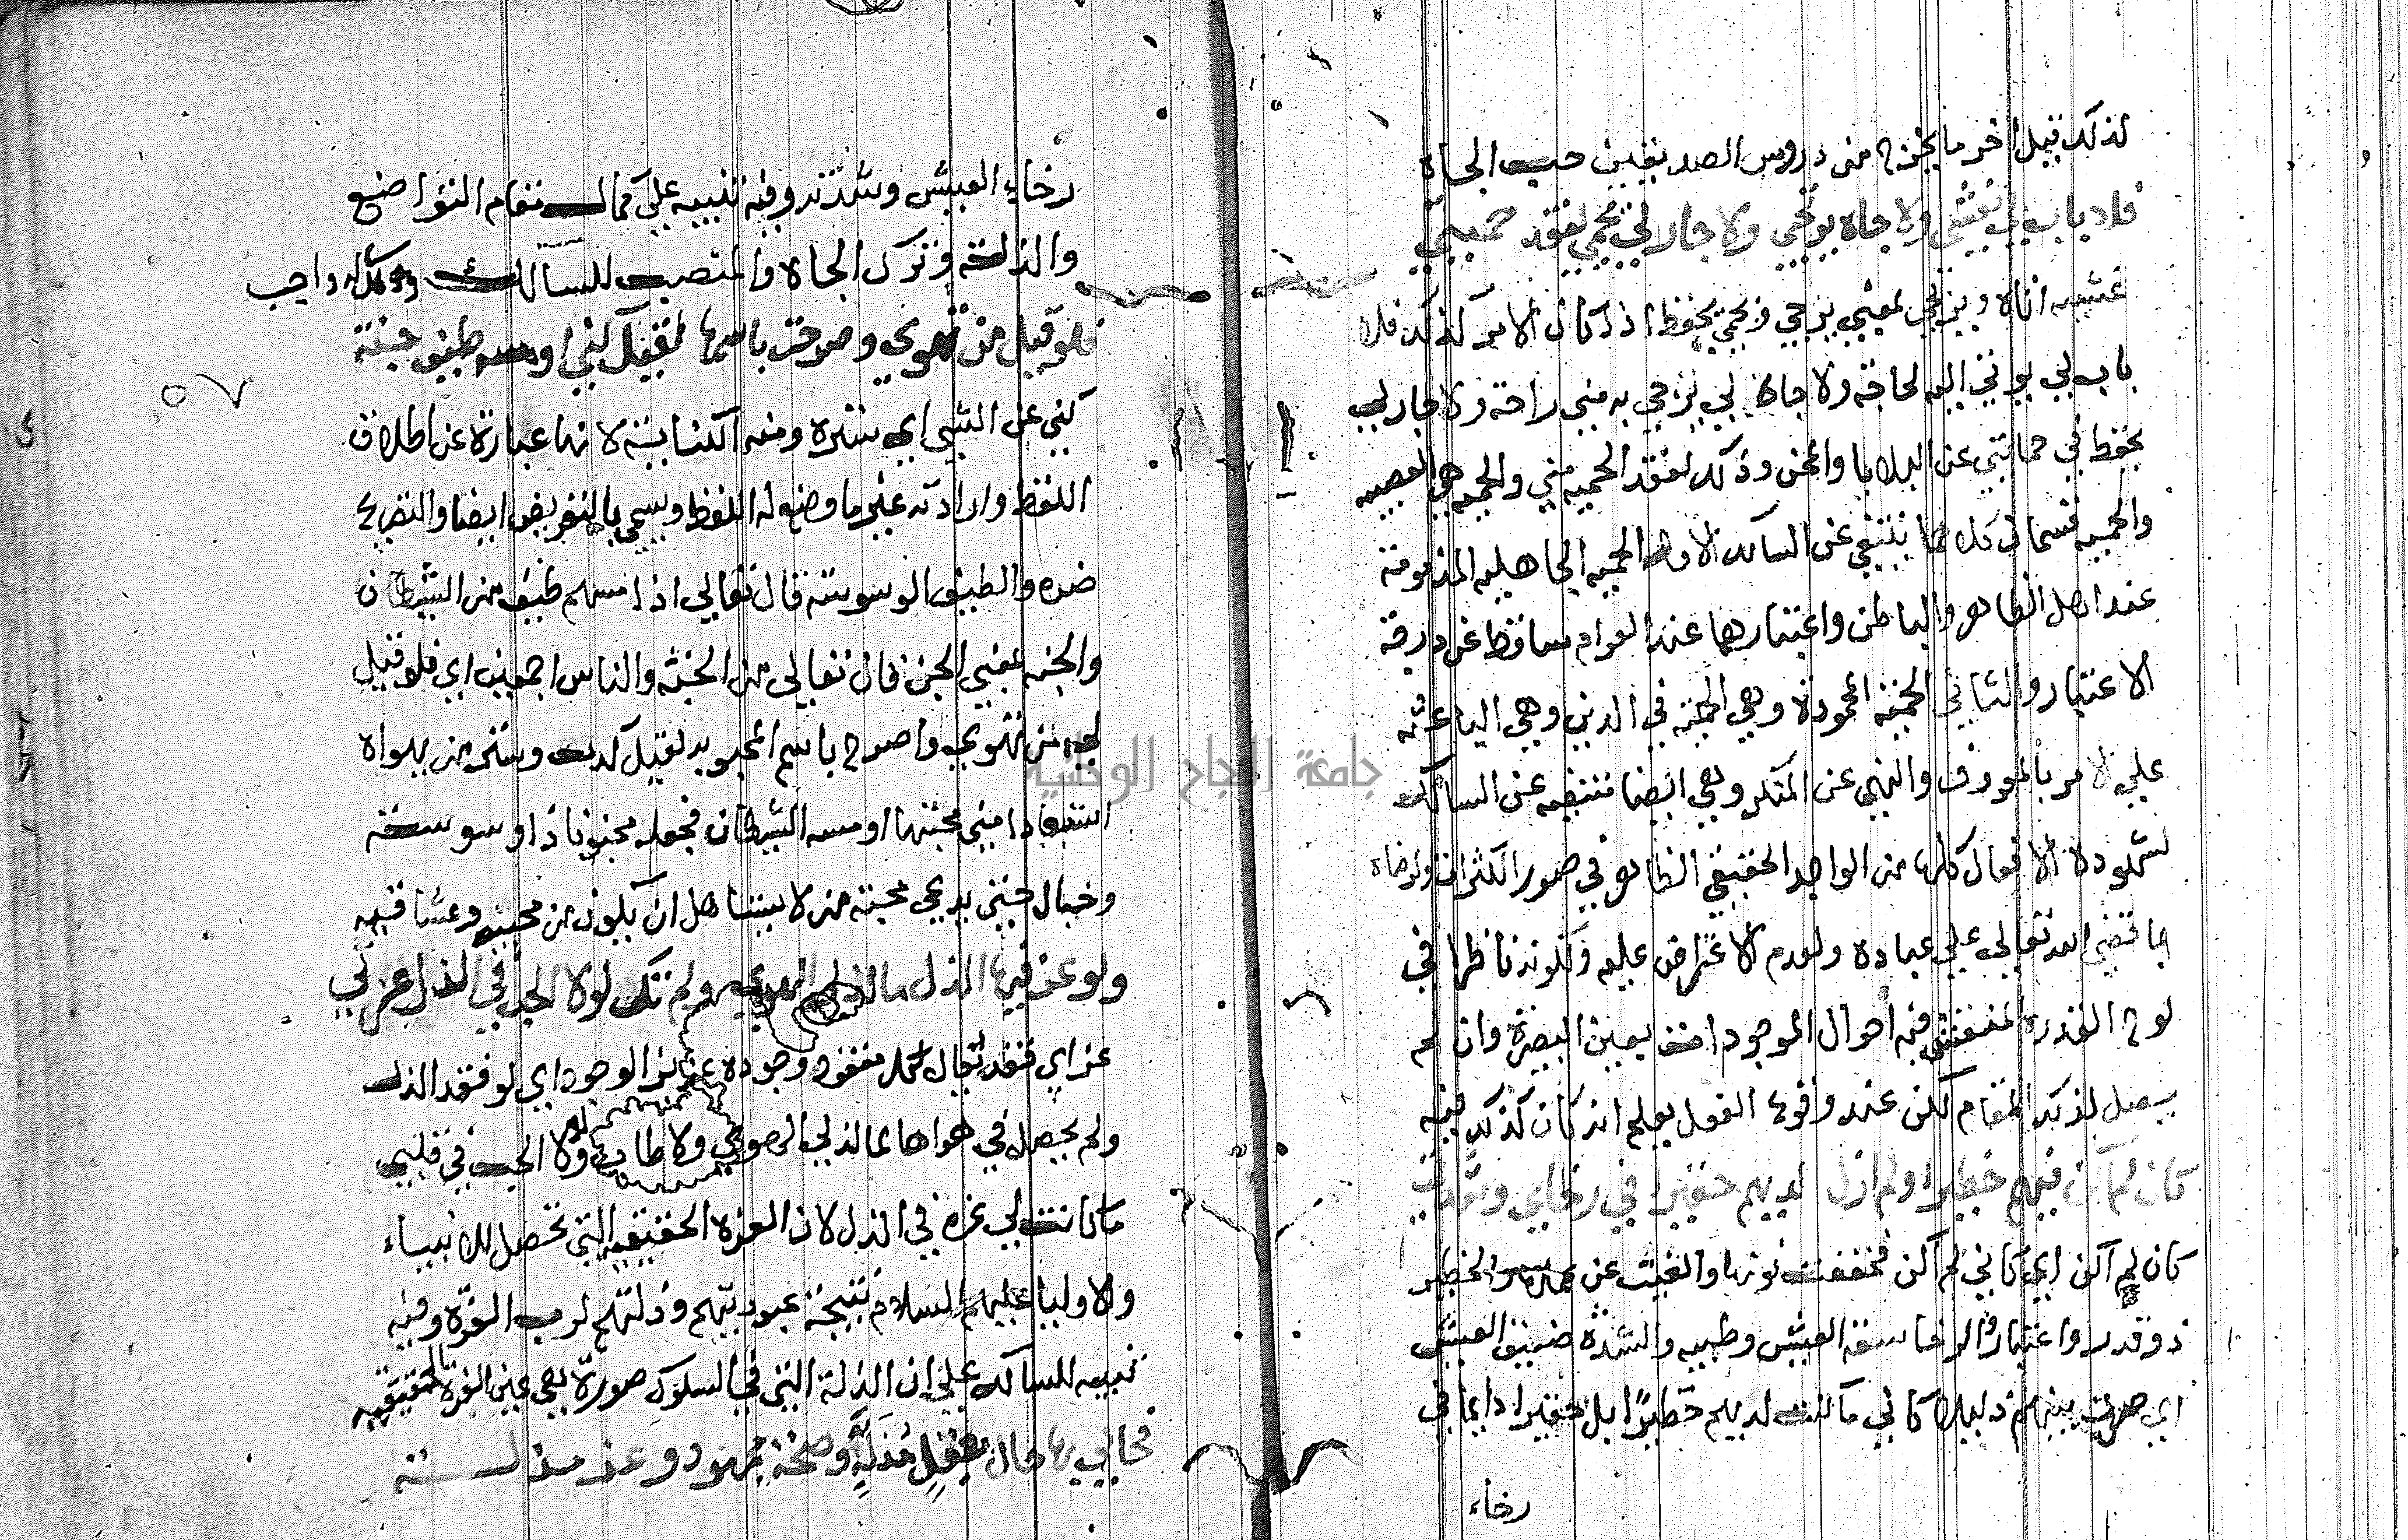 لذلك قيل اخر ما يخرج من رؤس الصديقين حب الجاه
فلا باب لي يغشي ولا جاه يرتجي ولا جار لي يحمي لفقد حميتي
غشيه اتاه ويرتجي بمعني يرجي ويحمي يحفظ اذ كان الامر كذلك فلا
باب لي يوتي اليه لحاجة ولا جاه لي يرجي به مني راحة ولا جار لي
يحفظ في حمايتي عن البلايا والمحن وذلك لفقد الحميه مني والحميه هي العصبيه
والحميه قسمان كلاهما ينتفي عن السالك الاول الحميه الجاهليه المذمومة
عند اهل الظاهر والباطن واعتبارها عند العوام ساقط عن درجة
الاعتبار والثاني الحمية المحمودة وهي الحمية في الدين وهي الباعثه
علي الامر بالمعروف والنهي عن المنكر وهي ايضا منتفيه عن السالك
لشهوده الافعال كلها من الواحد الحقيقي الظاهر في صور الكثرات ولرضاه
بما قضي الله تعالي علي عباده ولعدم الاعتراض عليه ولكونه ناظرا في
لوح القدرة المنتقش فيه احوال الموجودات بعين البصيرة وان لم
يصل لذلك المقام لكن عند وقوع الفعل يعلم انه كان كذلك فيه
كان لم اكن فيهم خطيرا ولم ازل لديهم حقيرا في رخاي وشدتي
كان لم اكن اي كاني لم اكن فخففت نونها والغيت عن عملها والخطير
ذو قدر واعتبار والرخا سعة العيش وطيبه والشدة ضيق العيش
اي صرت بينهم ذليلا كاني ما كنت لديهم خطيرا بل حقيرا دايما في
رخاء
رخاء العيش وشدته وفيه تنبيه علي كمال مقام التواضع
والذلة وترك الجاه والمنصب للسالك واجب
فلو قيل من تهوي وصرحت باسمها لقيل كني او مسه طيف جنة
كني عن الشي اي ستره ومنه الكناية لانها عبارة عن اطلاق
اللفظ وارادة غير ما وضع له اللفظ ويسمي بالتعريض ايضا والتصريح
ضده والطيف الوسوسة قال تعالي اذا مسهم طيف من الشيطان
والجنه بمعني الجن قال تعالي من الجنة والناس اجمعين اي فلو قيل
لي من تهوي واصرح باسم المحبوبه لقيل كذب وستر من يهواه
استبعادا مني محبتها او مسه الشيطان فجعله مجنونا ذا وسوسة
وخبال حتي يدعي محبة من لا يستاهل ان يكون من محبيه وعشاقه
ولو عز فيها الذل ما لذ لي الهوي ولم تك لولا الحب في الذل عزتي
عز اي فقد يقال لكل مفقود وجوده عزيز الوجود اي لو فقد الذل
ولم يحصل في هواها لما لذ لي الهوي ولا طاب ولولا الحب في قلبي
ما كانت لي عزه في الذل لان العزه الحقيقيه التي تحصل للانبياء
والاوليا عليهم السلام نتيجة عبوديتهم وذلتهم لرب العزة وفيه
تنبيه للسالك علي ان الذلة التي في السلوك صورة هي عين العزة الحقيقيه
فحالي بها حال بعقل مدله وصحة مجهود وعز مذلة